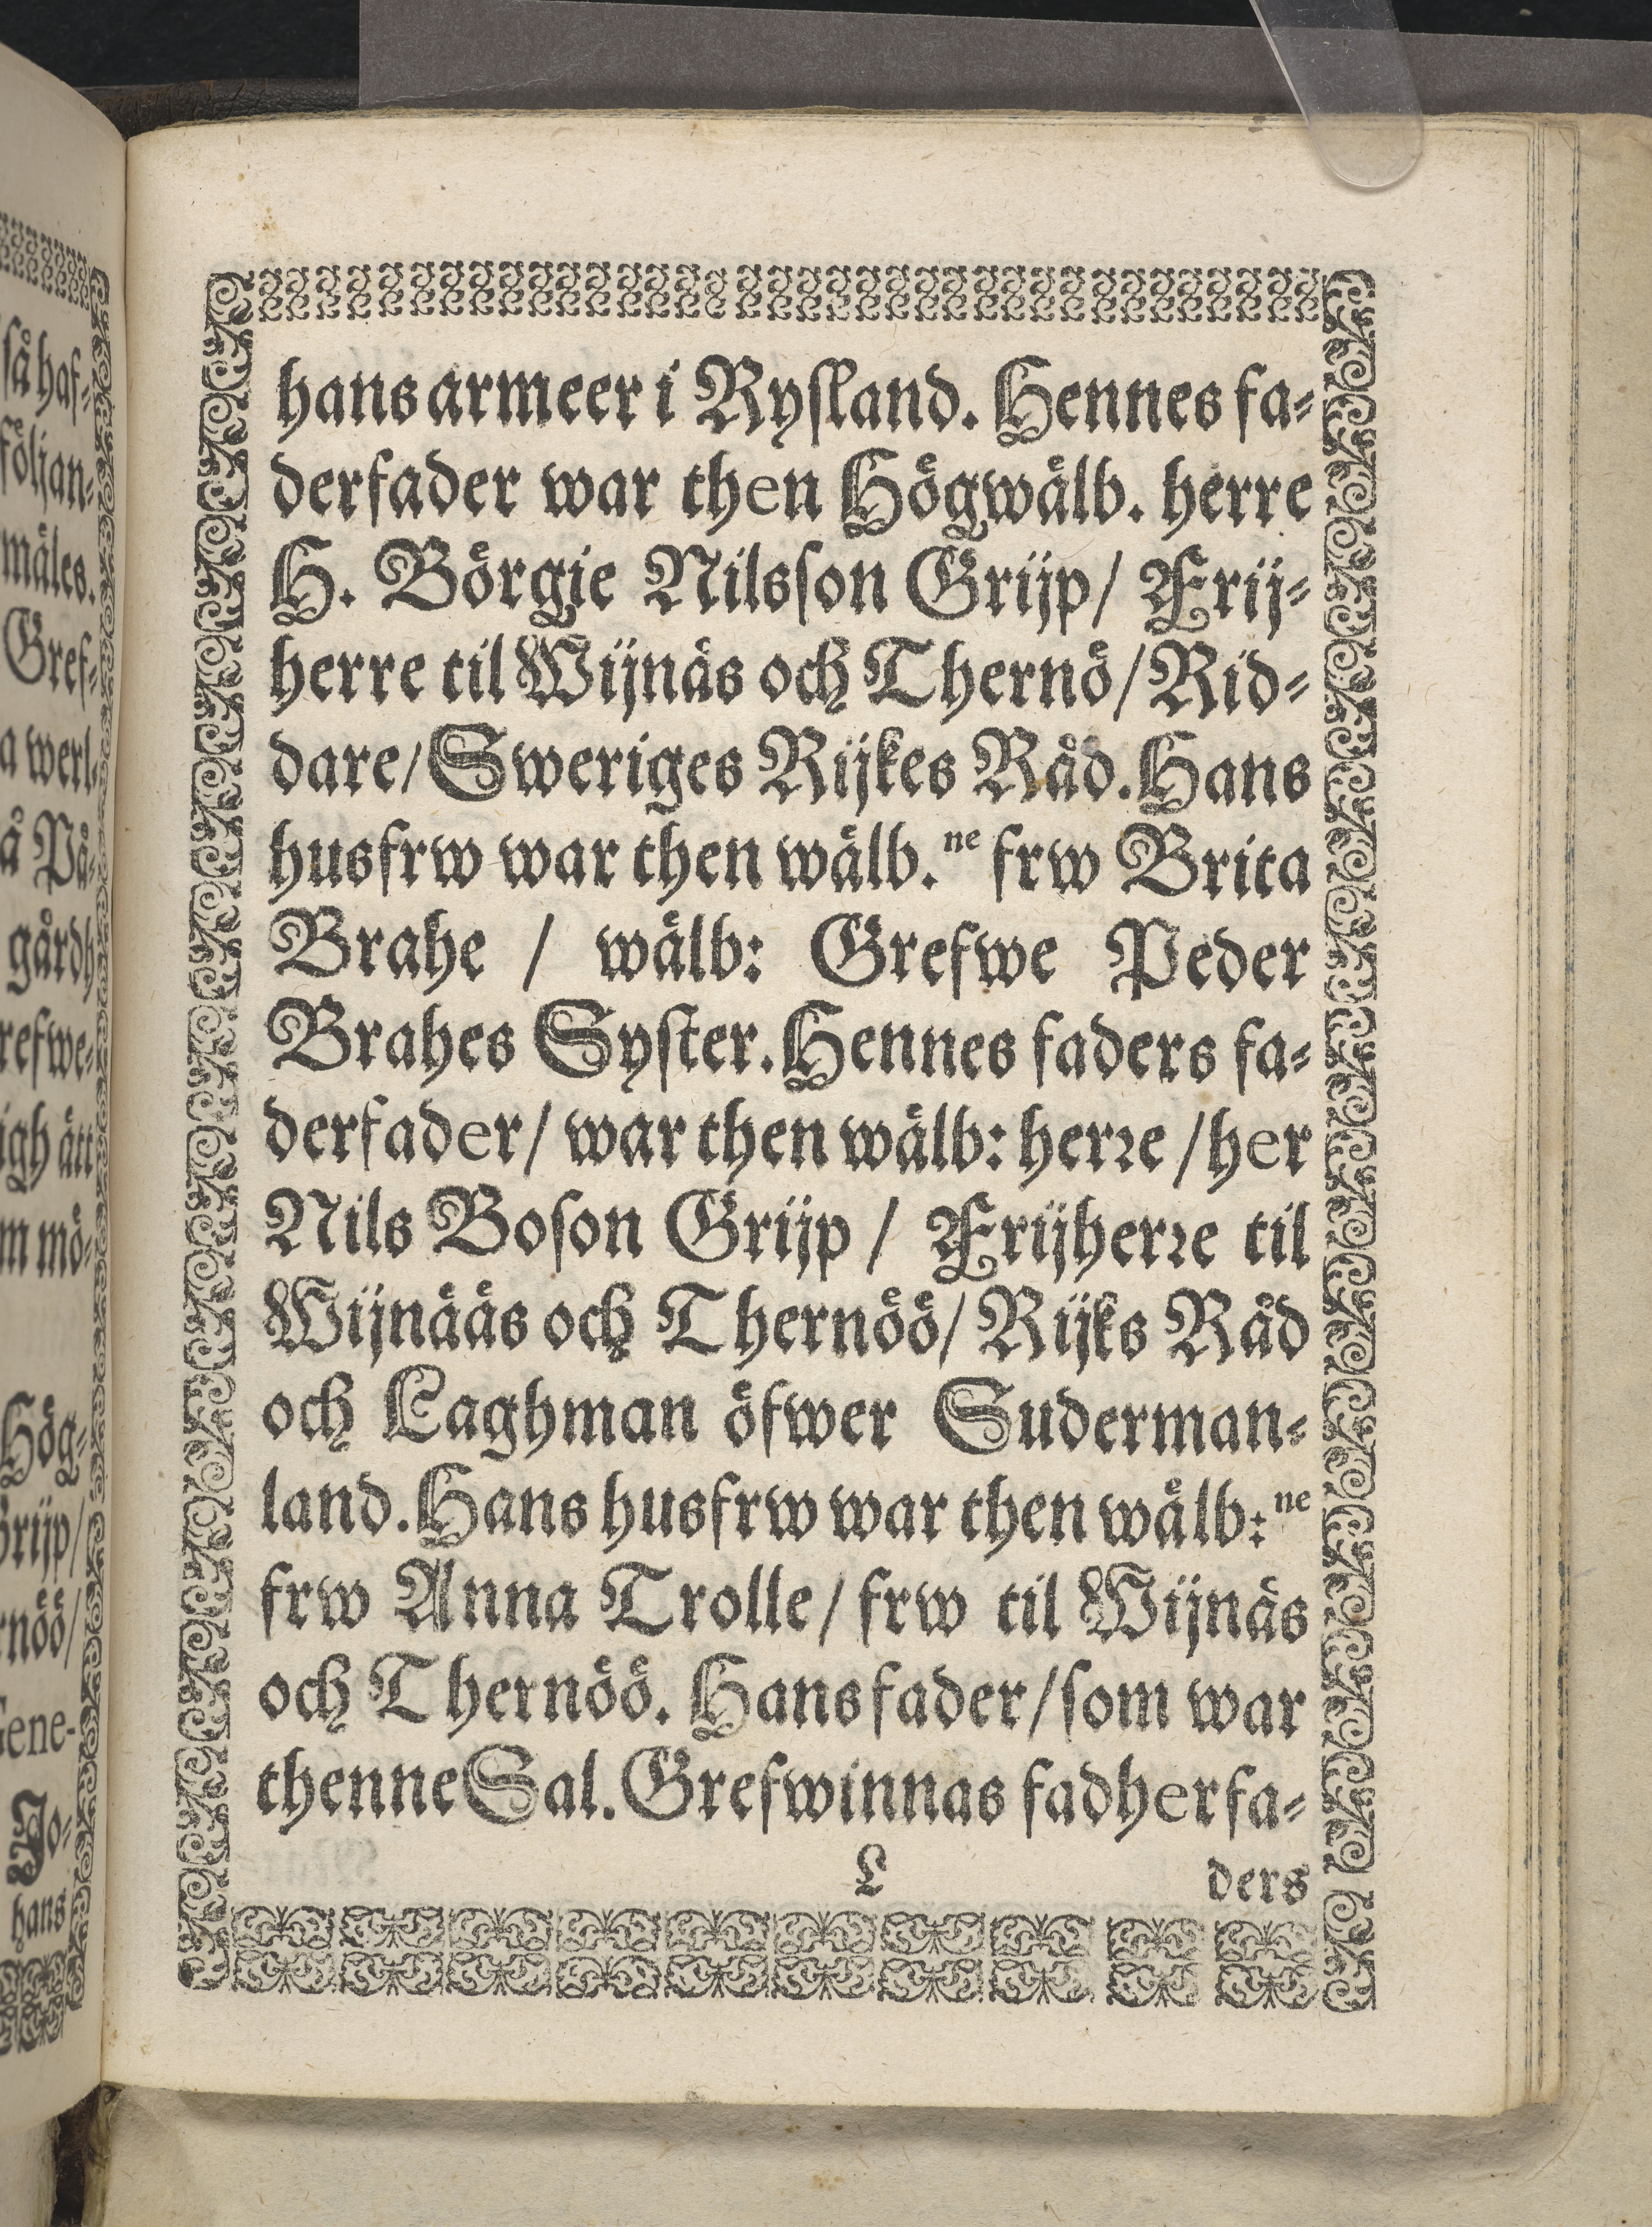 så haf-
följan-
mäles.
Gref-
a werl-
å På-
gårdh
refwe-
igh ätt
m mö-
Hög-
Grijp/
rnöö/
Gene-
Jo-
hans
hans armeer i Rysland. Hennes fa-
derfader war then Högwälb. herre
H. Börgie Nilsson Grijp/ Frij-
herre til Wijnäs och Thernö/ Rid-
dare/ Sweriges Rijkes Råd. Hans
husfrw war then wälb.ne frw Brita
Brahe / wälb: Grefwe Peder
Brahes Syster. Hennes faders fa-
derfader/ war then wälb: herꝛe /her
Nils Boson Grijp / Frijherꝛe til
Wijnääs och Thernöö/ Rijks Råd
och Laghman öfwer Suderman-
land. Hans husfrw war then wälb:ne
frw Anna Trolle/ frw til Wijnäs
och Thernöö. Hans fader/ som war
thenne Sal. Grefwinnas fadherfa-
L ders